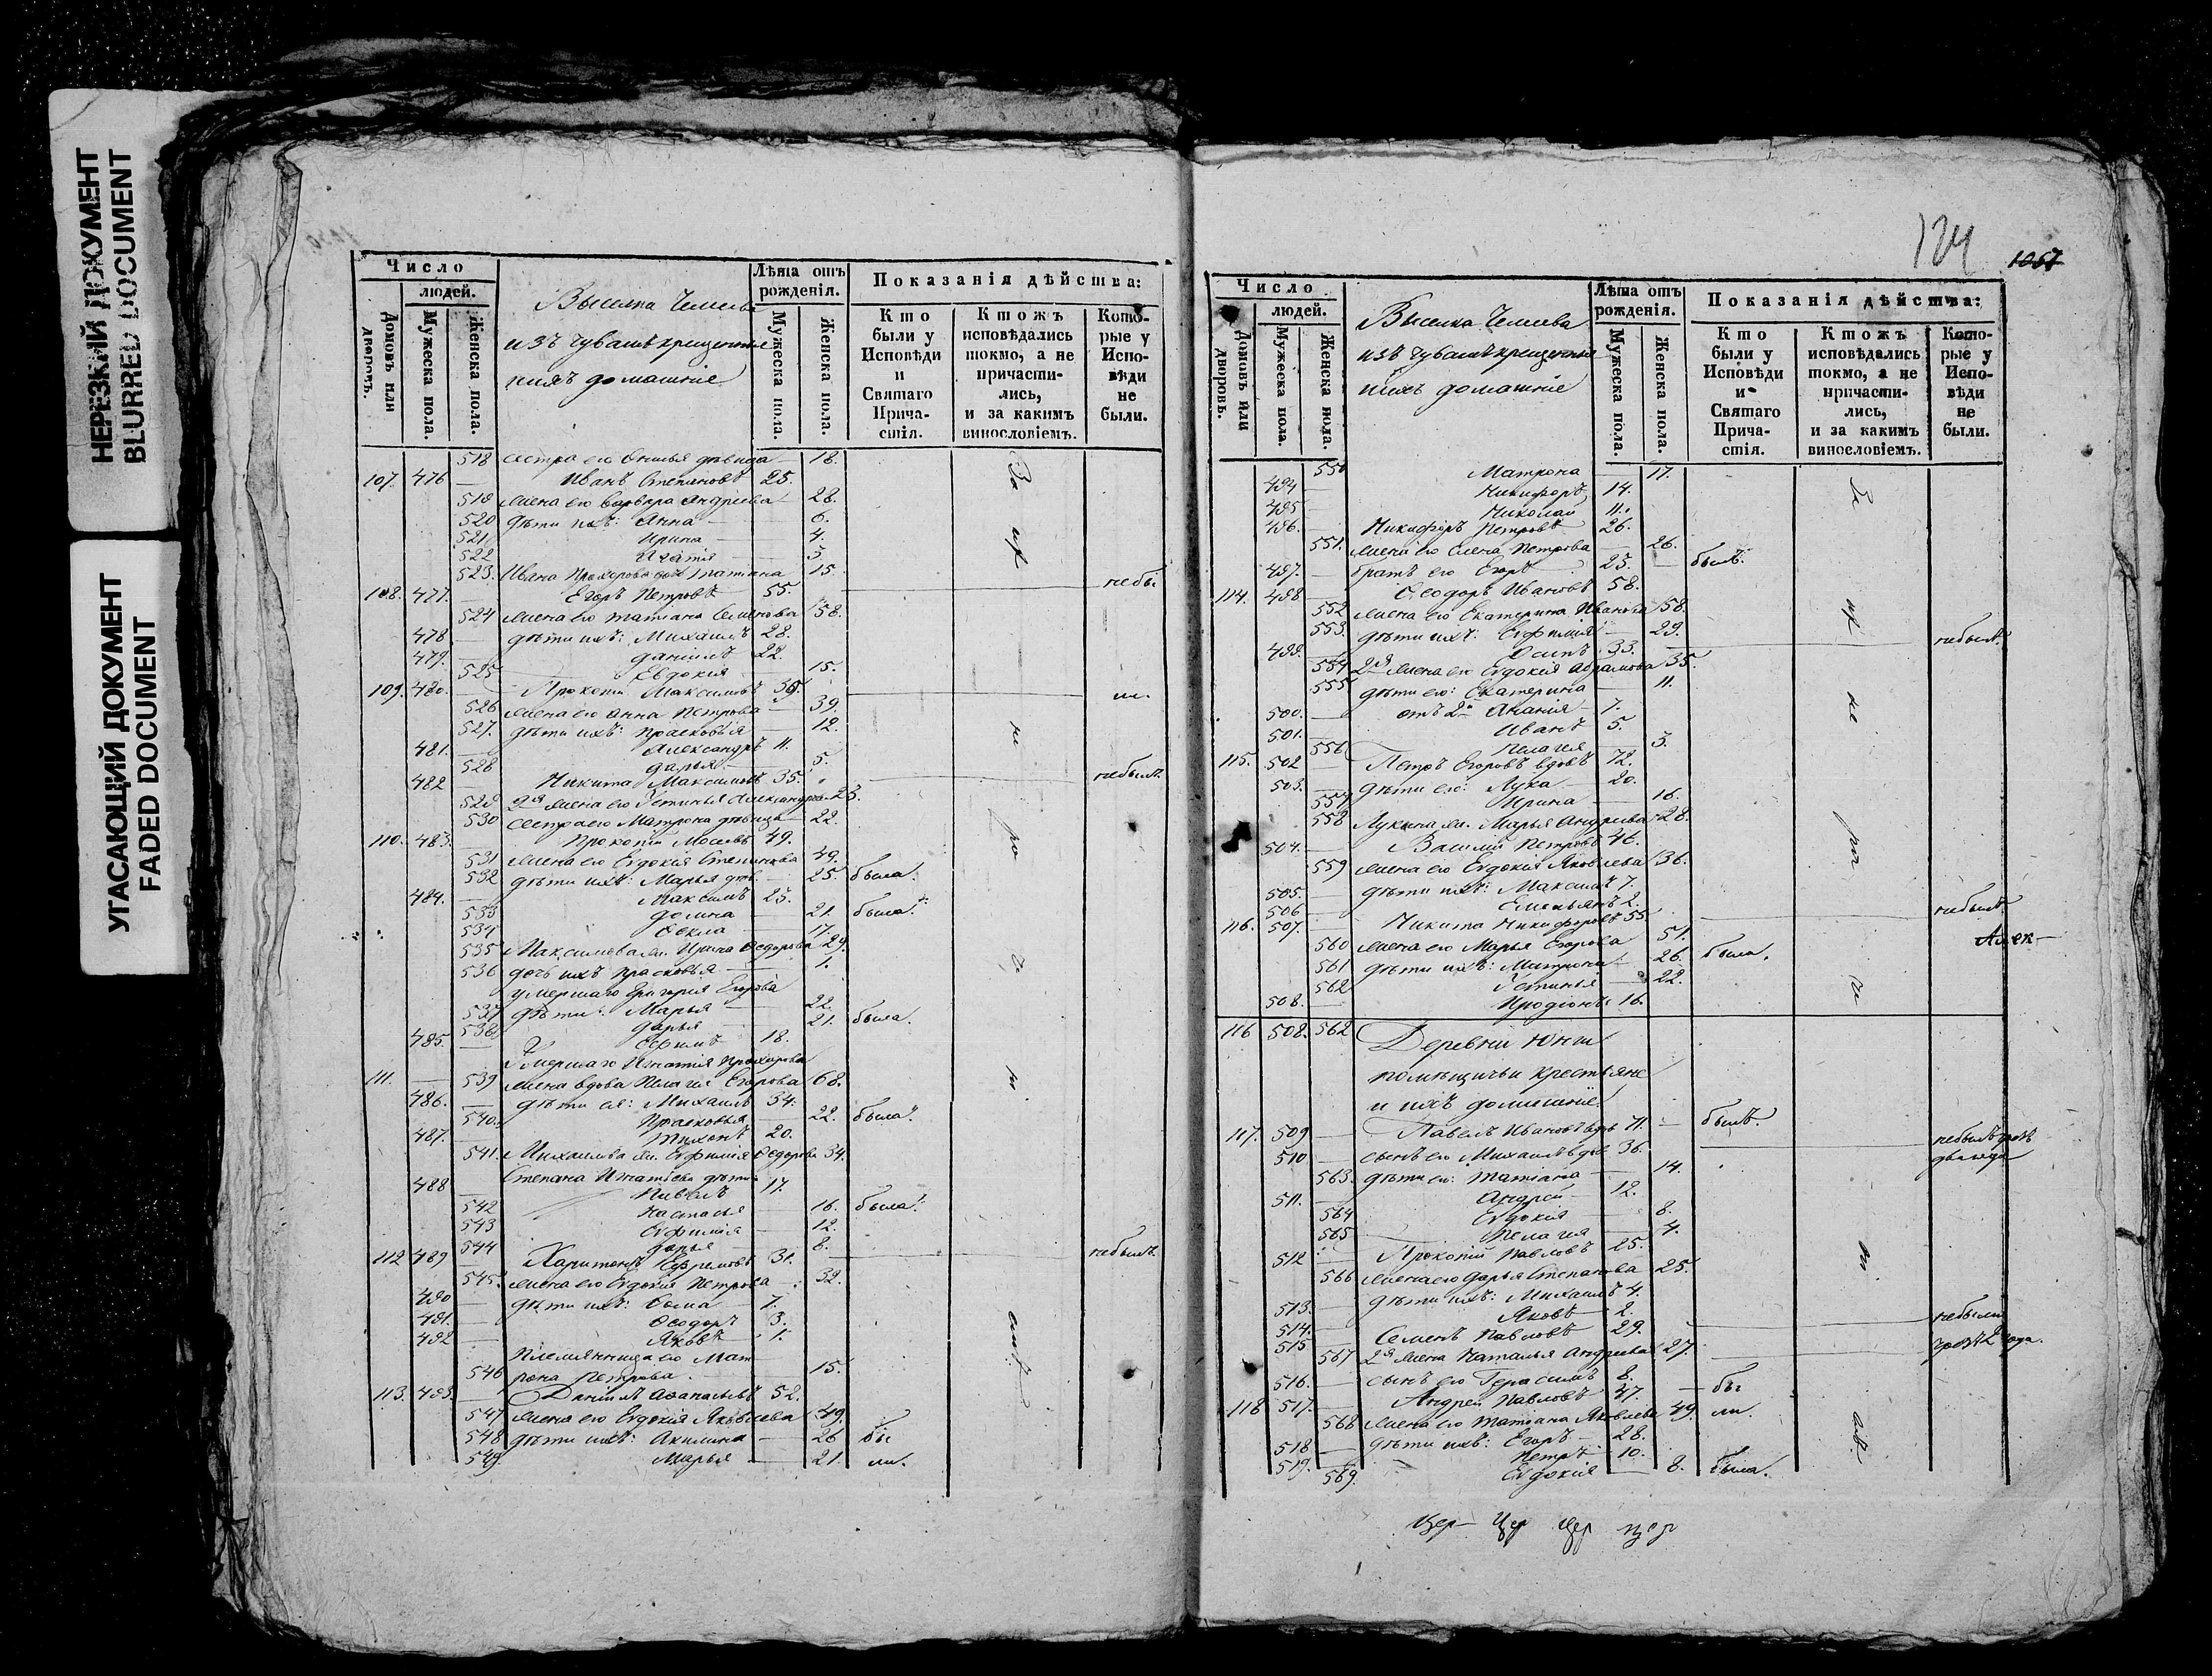 НЕРЕЗКИЙ ДОКУМЕНТ
BLURRED DOCUMENT
УГАСАЮЩИЙ ДОКУМЕНТ
FADED DOCUMENT
Число
людей.
Домовъ или дворовъ.
Мужеска пола.
Женска пола.
Выселка
изъ чувашъ крещенные
и ихъ домашніе
Лѣта отъ рожденія.
Мужеска пола.
Женска пола.
Показанія дѣйства:
Кто были у Исповѣди и Святаго Прича-стія.
Ктожъ исповѣдались токмо, а не причасти-лись, и за какимъ винословіемъ.
Кото-рые у Испо-вѣди не были.
518 сестра его дѣвица 18.
107. 476 Иванъ Степановъ 25.
519 жена его Варвара Андреева 28.
520 дѣти ихъ: Анна 6.
521 Ирина 4.
522
523. Ивана Прохорова дочь Татіана 15.
108. 477. Егоръ Петровъ 55. небы
524 жена его Татіана Семенова 58.
478 дѣти ихъ: Михаилъ 28.
479. Даніилъ 22.
525 Евдокія 15.
109. 480. Прокопій Максимовъ 39. ли.
526 жена его Анна Петрова 39.
527. дѣти ихъ: Прасковья 12.
481. Александръ 11.
528 Дарья 5.
482 Никита Максимовъ 35. небылъ
529 2я жена его Устинья 23.
530 сестра его Матрона дѣвица 22.
110. 483. Прокопій 49.
531 жена его Евдокія Степанова 49.
532 дѣти ихъ: Марья дѣв. 25. была.
484. Максимъ 23.
533 Домна 21. была.
534 Ѳекла 17.
535 Максимова жи. Ирина Ѳедорова 29.
536 дочь ихъ Прасковья 1.
умершаго Григорія Егорова
537 дѣти: Марья 22.
538 Дарья 21. была.
485. Ефимъ 18.
Умершаго Игнатія Прохорова
111. 539 жена вдова Пелагея Егорова 68.
486. дѣти ея: Михаилъ 34.
540. Прасковья 22. была.
487. Тихонъ 20.
541. Михаилова жи. Евфимія Ѳедорова 34.
Степана Игнатьева дѣти
488 Павелъ 17.
542 Настасья 16. была.
543 Евфимія 12.
544 Дарья 8.
112 489 Харитонъ Ефремовъ 31. небылъ
545. жена его Евдокія Петрова 32.
490 дѣти ихъ: Ѳома 7.
491. Ѳеодоръ 3.
492 Яковъ 1.
Племянница его Мат
546 рона Петрова. 15.
113. 493. Даніилъ Аѳанасьевъ 52.
547 жена его Евдокія Яковлева 49.
548 дѣти ихъ: Акилина 26 бы
549. Марья 21. ли.
124 1057
Число
людей.
Домовъ или дворовъ.
Мужеска пола.
Женска пола.
Выселка
изъ чувашъ крещенные
и ихъ домашніе
Лѣта отъ рожденія.
Мужеска пола.
Женска пола.
Показанія дѣйства:
Кто были у Исповѣди и Святаго Прича-стія.
Ктожъ исповѣдались токмо, а не причасти-лись, и за какимъ винословіемъ.
Кото-рые у Испо-вѣди не были.
550 Матрона 17.
494 Никифоръ 14.
495 Николай 11.
496. Никифоръ Петровъ 26.
551. жена его Елена Петрова 26.
497. братъ его Егоръ 23. былъ.
114. 498 Ѳеодоръ Ивановъ 58.
552 жена его Екатерина Иванова 58.
553. дѣти ихъ: Евфимія 29. небылъ
499. Осипъ 33.
554 2я жена его Евдокія Абрамова 35.
555 дѣти его: Екатерина 11.
500. отъ 2й Ананія 7.
501. Иванъ 5.
556 Пелагея 3.
115. 502 Петръ Егоровъ вдовъ 72.
503. дѣти его: Лука 20.
557 Ирина 16.
558 Лукина жи. Марья Андреева 28.
504. Василій Петровъ 46.
559 жена его Евдокія Яковлева 36.
505. дѣти ихъ: Максимъ 7.
506 Емельянъ 2.
116. 507. Никита Никифоровъ 55. небылъ
560 жена его Марья Егорова 51.
561 дѣти ихъ: Матрона 26. была.
562 Устинья 22.
508. Иродіонъ 16.
116 508. 562 Деревни Юнги
помѣщичьи крестьяне
и ихъ домашніе.
117. 509 Павелъ Ивановъ вдовъ 71. былъ.
510 сынъ его Михаилъ вдов 36.
563. дѣти его: Татіана 14.
511. Андрей 12.
564 Евдокія 8.
565 Пелагея 4.
512 Прокопій Павловъ 25.
566 жена его Дарья Степанова 25.
513. дѣти ихъ: Михаилъ 4.
514. Яковъ 2.
515 Семенъ Павловъ 29. небыли
567 2я жена Наталья Андреева 27.
516. сынъ его Герасимъ 8.
118 517. Андрей Павловъ 47. бы
568 жена его Татіана Яковлева 49. ли.
518 дѣти ихъ: Егоръ 28.
519. Петръ 10.
569. Евдокія 8. была.